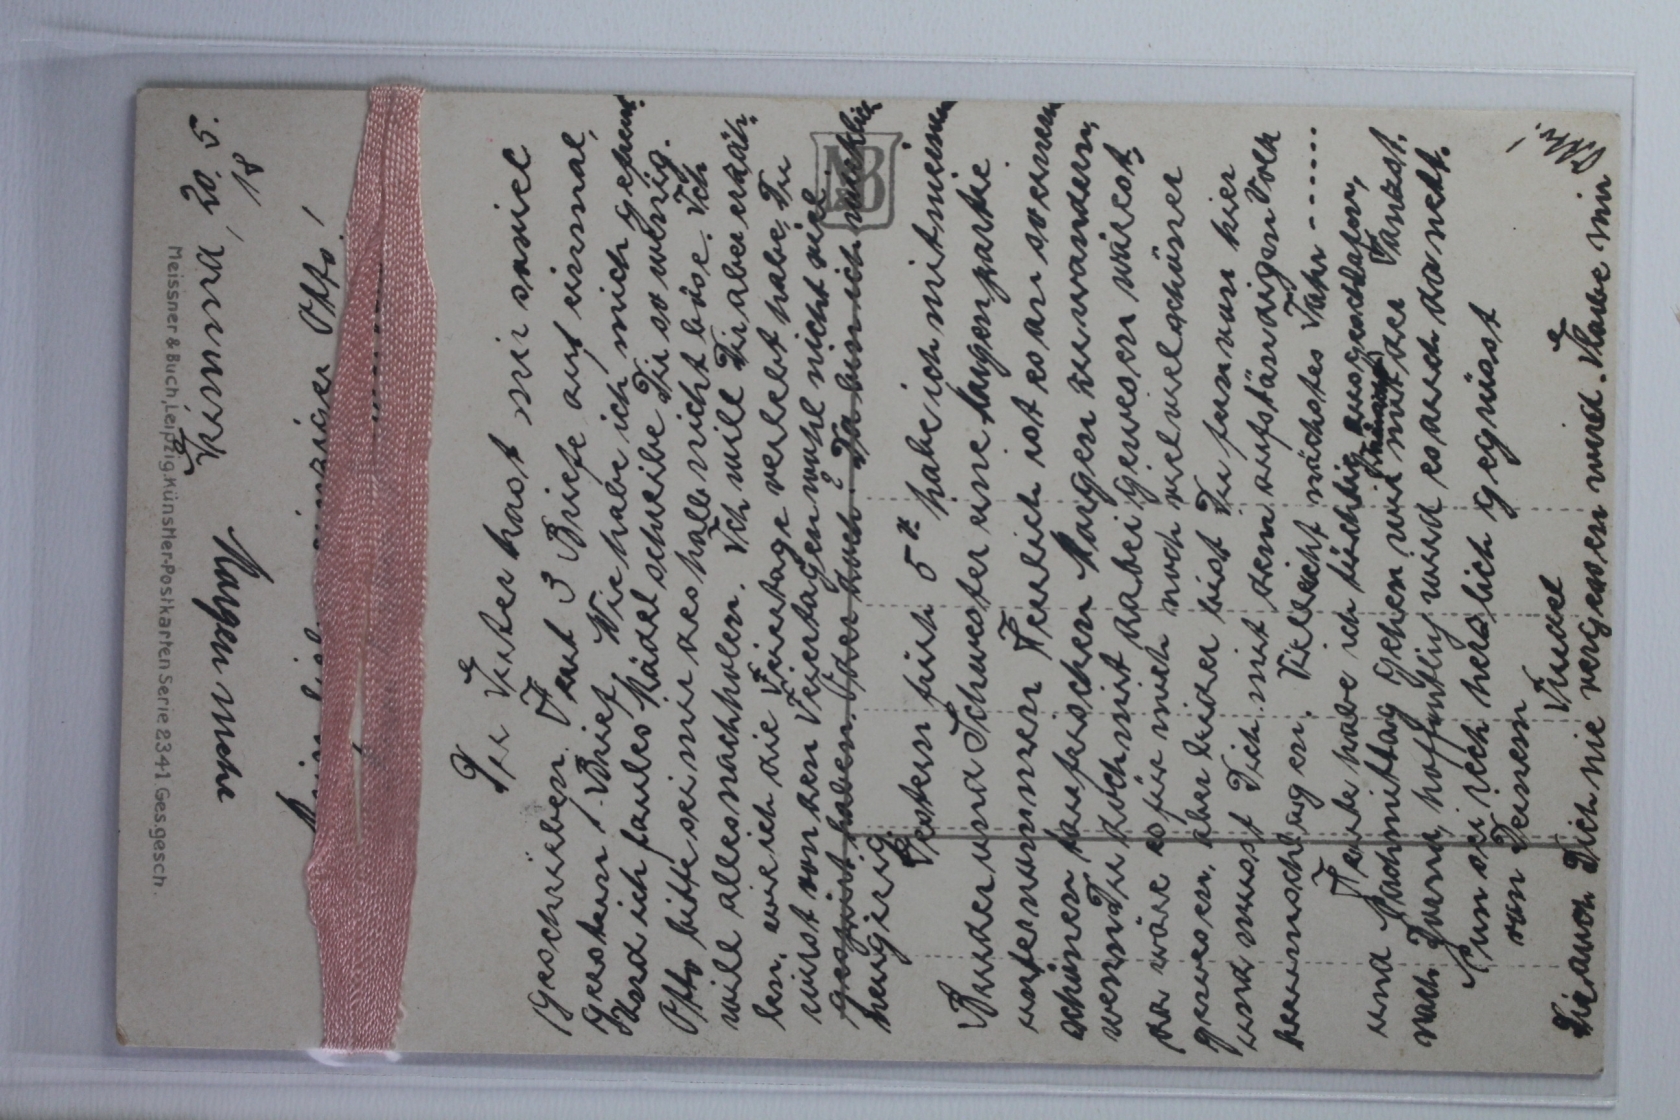 Meissner & Buch, Leipzig. Künstler-Postkarten Serie 2341 Ges. gesch.
18
Otto!
Du Guter hast mir soviel
geschrieben. Fast 3 Briefe auf einmal,
gestern 1 Brief. Wie habe ich mich gefreut
Und ich faules Mädel schreibe Dir so wenig.
Otto bitte sei mir deshalb nicht böse. Ich
will alles nachholen. Ich will Dir aber erzäh-
len, wie ich die Feiertage verlebt habe. Du
wirst von den Feiertagen wohl nicht viel
gespürt haben. Oder doch? Da bin ich
neugierig.
Gestern früh 5 habe ich mit meinem
Bruder und Schwester eine
unternommen. Herrlich ist es an so einem
schönen Morgen zu wandern,
wenn Du doch mit dabei gewesen wärest,
da wäre es für mich noch viel viel schöner
gewesen, aber leider bist Du fern von hier
und musst Dich mit dem Volk
herumschlagen. Vielleicht nächstes Jahr ......
Heute habe ich tüchtig ausgeschlafen,
und Nachmittag gehen wir mit der
nach hoffentlich wird es auch da nett.
Nun sei recht herzlich gegrüsst
von Deinem
Dich nie vergessen wird.
MB